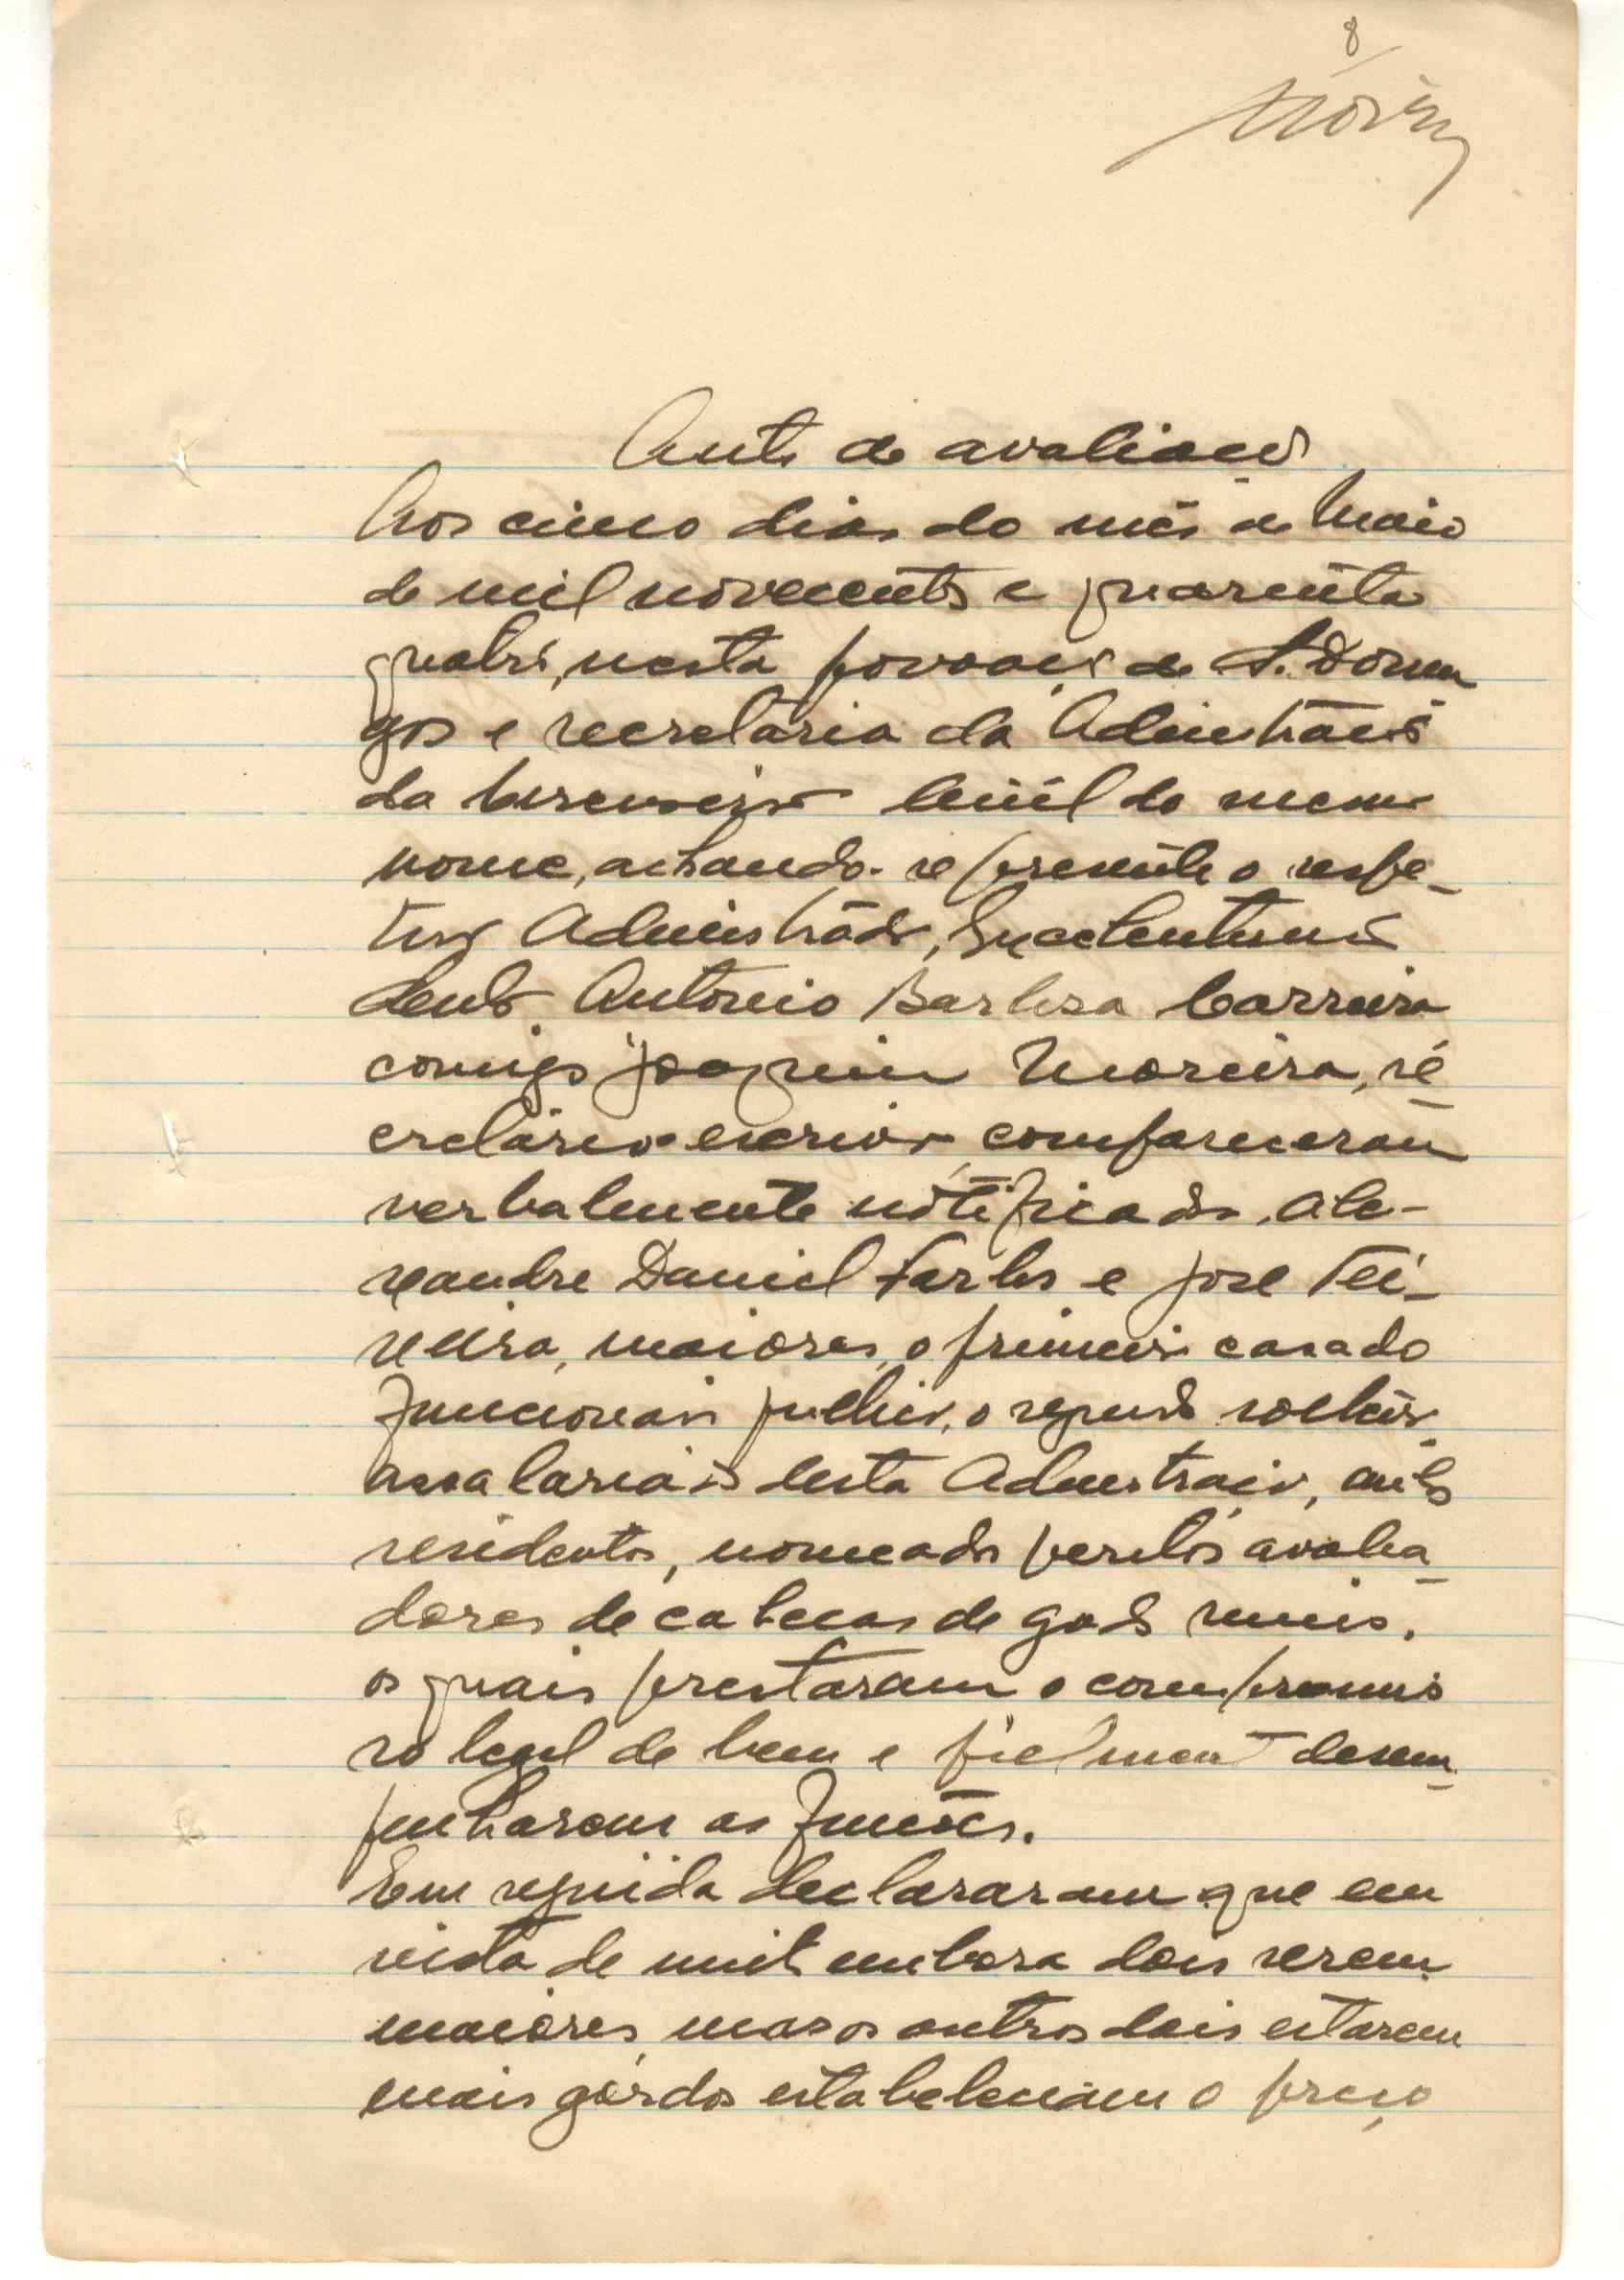 8
Auto de avaliação
Aos cinco dias do mês de Maio
de mil novecentos e quarenta
quatro, nesta povoação de S. Domin
gos e secretaria da Administração
da Circunscrição Civil do mesmo
nome, achando-se presente o respe-
tivo Administrador, Excelentissimo
Senhor Antonio Barbosa Carreira
comigo Joaquim Moreira, se
cretário escrivão compareceram
verbalmente notificados, Ale-
xandre Daniel Forbes e José Tei-
xeira, maiores, o primeiro casado
funcionario publico, o segundo solteiro
assalariado desta Administração, ambos
residentes, nomeados peritos avalia
dores de cabeças de gado suino,
os quais prestaram o compromis
so legal de bem e fielmente desem
penharem as funções.
Em seguida declararam que em
vista de embora dois serem
maiores, mas os outros dois estarem
mais gordos estabeleciam o preço